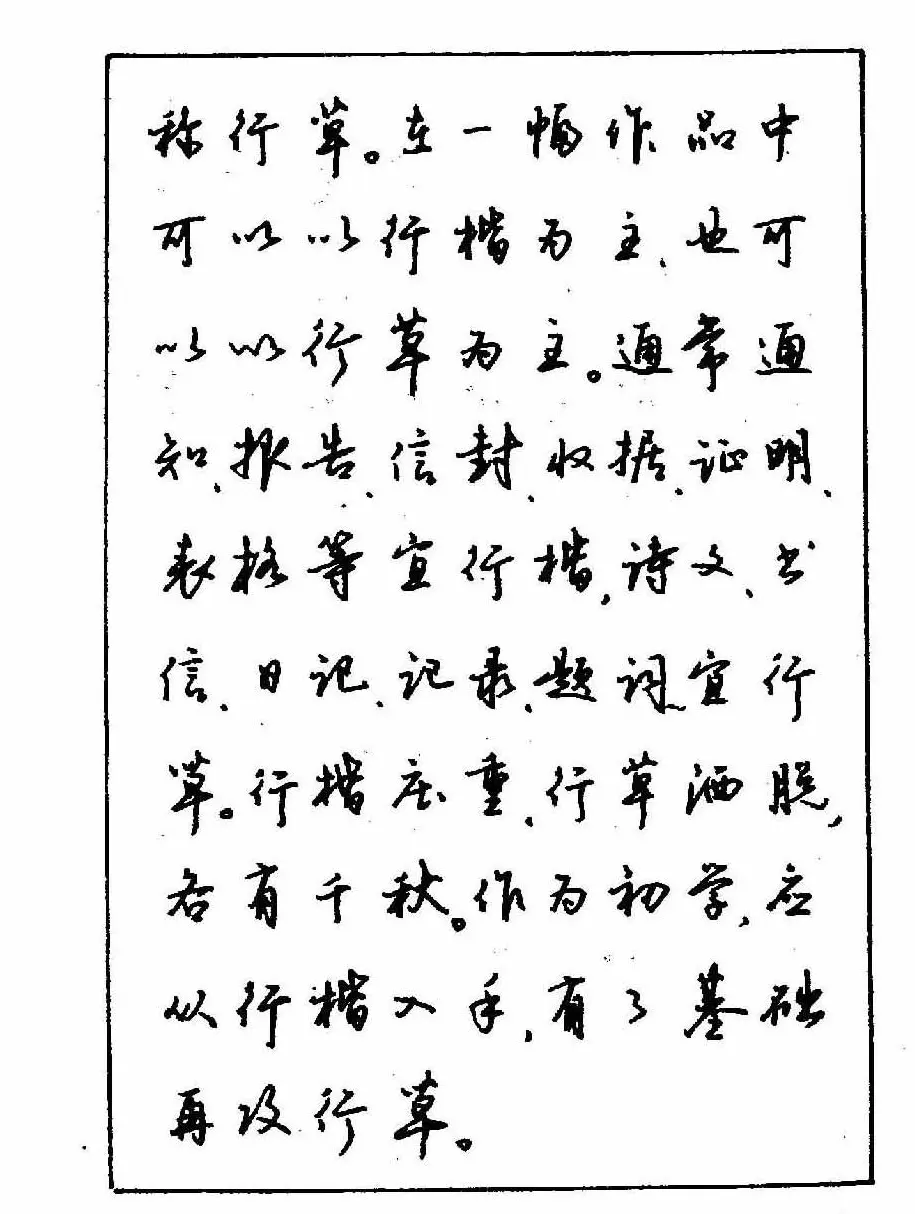 称行草。在一幅作品中
可以以行楷为主、也可
以以行草为主。通常通
知、报告、信封、收据、证明、
表格等宜行楷,诗文、书
信、日记、记录、题词、宜行
草。行楷庄重、行草洒脱,
各有千秋。作为初学,应
从行楷入手,有了基础
再攻行草。